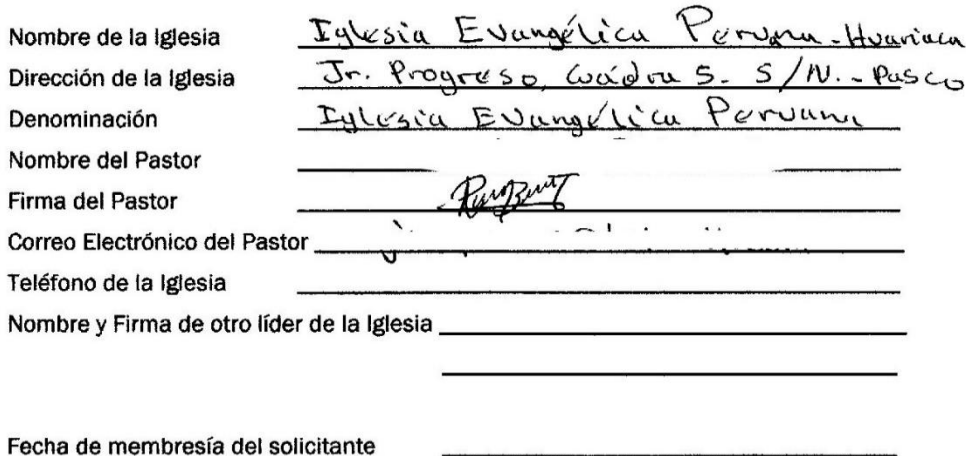 Nombre de la Iglesia Iglesia Evangélica Peruana - Huariaca
Dirección de la Iglesia Jr. Progreso, Cuádra 5. S/N. - Pasco
Denominación Iglesia Evangélica Peruana
Nombre del Pastor
Firma del Pastor
Correo Electrónico del Pastor
Teléfono de la Iglesia
Nombre y Firma de otro líder de la Iglesia
Fecha de membresía del solicitante